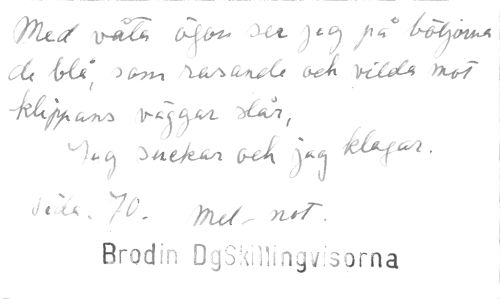 Med våta ögon ser jag på böljorna
de blå, som rasande och vilda mot
klippans väggar slår,
Jag suckar och jag klagar.
sida. 70. Mel- not.
Brodin DgSkillingvisorna